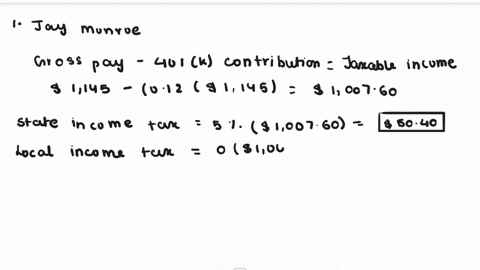 1. Jay munroe
Gross pay - 401(k) contribution = Taxable income
$ 1,145 - (0.12 ($ 1,145) = $ 1,007.60
state income tax = 5%. ($1,007.60) = $50.40
Local income tax = 0 ($1,00